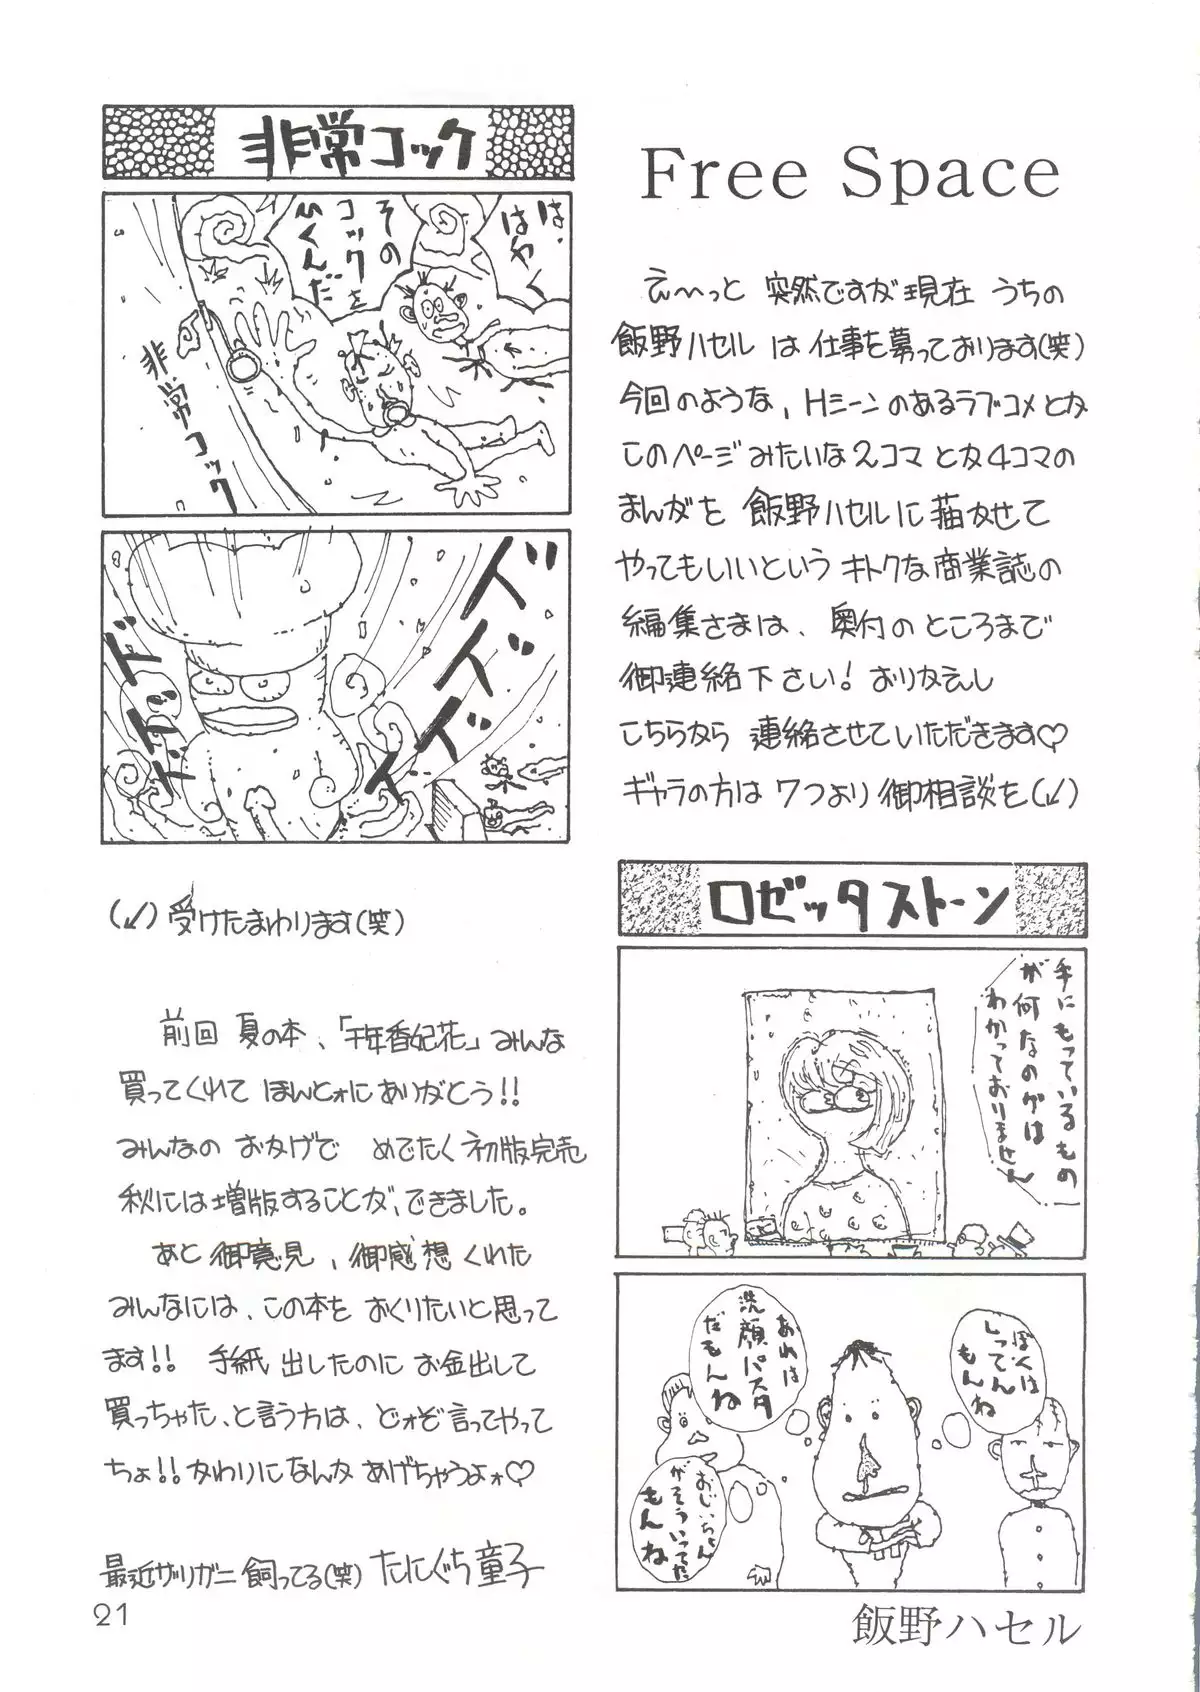 Free Space
えーっと 突然ですが現在 うちの
飯野ハセル は 仕事を募っております(笑)
今回のような、Hシーンのあるラブコメとか
このページみたいな2コマ とか4コマの
まんがを 飯野ハセルに描かせて
やってもいいという キトクな商業誌の
編集さまは、奥付のところまで
御連絡下さい! おりかえし
こちらから 連絡させていただきます♡
ギャラの方は 7つより 御相談を(↙)
ロゼッタストーン
手にもっているもの
が何なのかは
わかっておりません
ぼくは
しってん
もんね
あれは
洗顔パスタ
だもんね
おじいちゃん
がそういってた
もんね
飯野ハセル
非常コック
は・
はやく
その
コックを
ひくんだ
非常コック
ドドド
ドドド
(↙) 受けたまわります(笑)
前回 夏の本、「千年香妃花」みんな
買ってくれて ほんとォにありがとう!!
みんなの おかげで めでたく初版完売
秋には増版することが、できました。
あと 御意見、御感想 くれた
みんなには、この本を おくりたいと思って
ます!! 手紙 出したのに お金出して
買っちゃた、と言う方は、どォぞ言ってやって
ちょ!! かわりになんか あげちゃうよォ♡
最近ザリガニ 飼ってる(笑) たにぐち童子
21